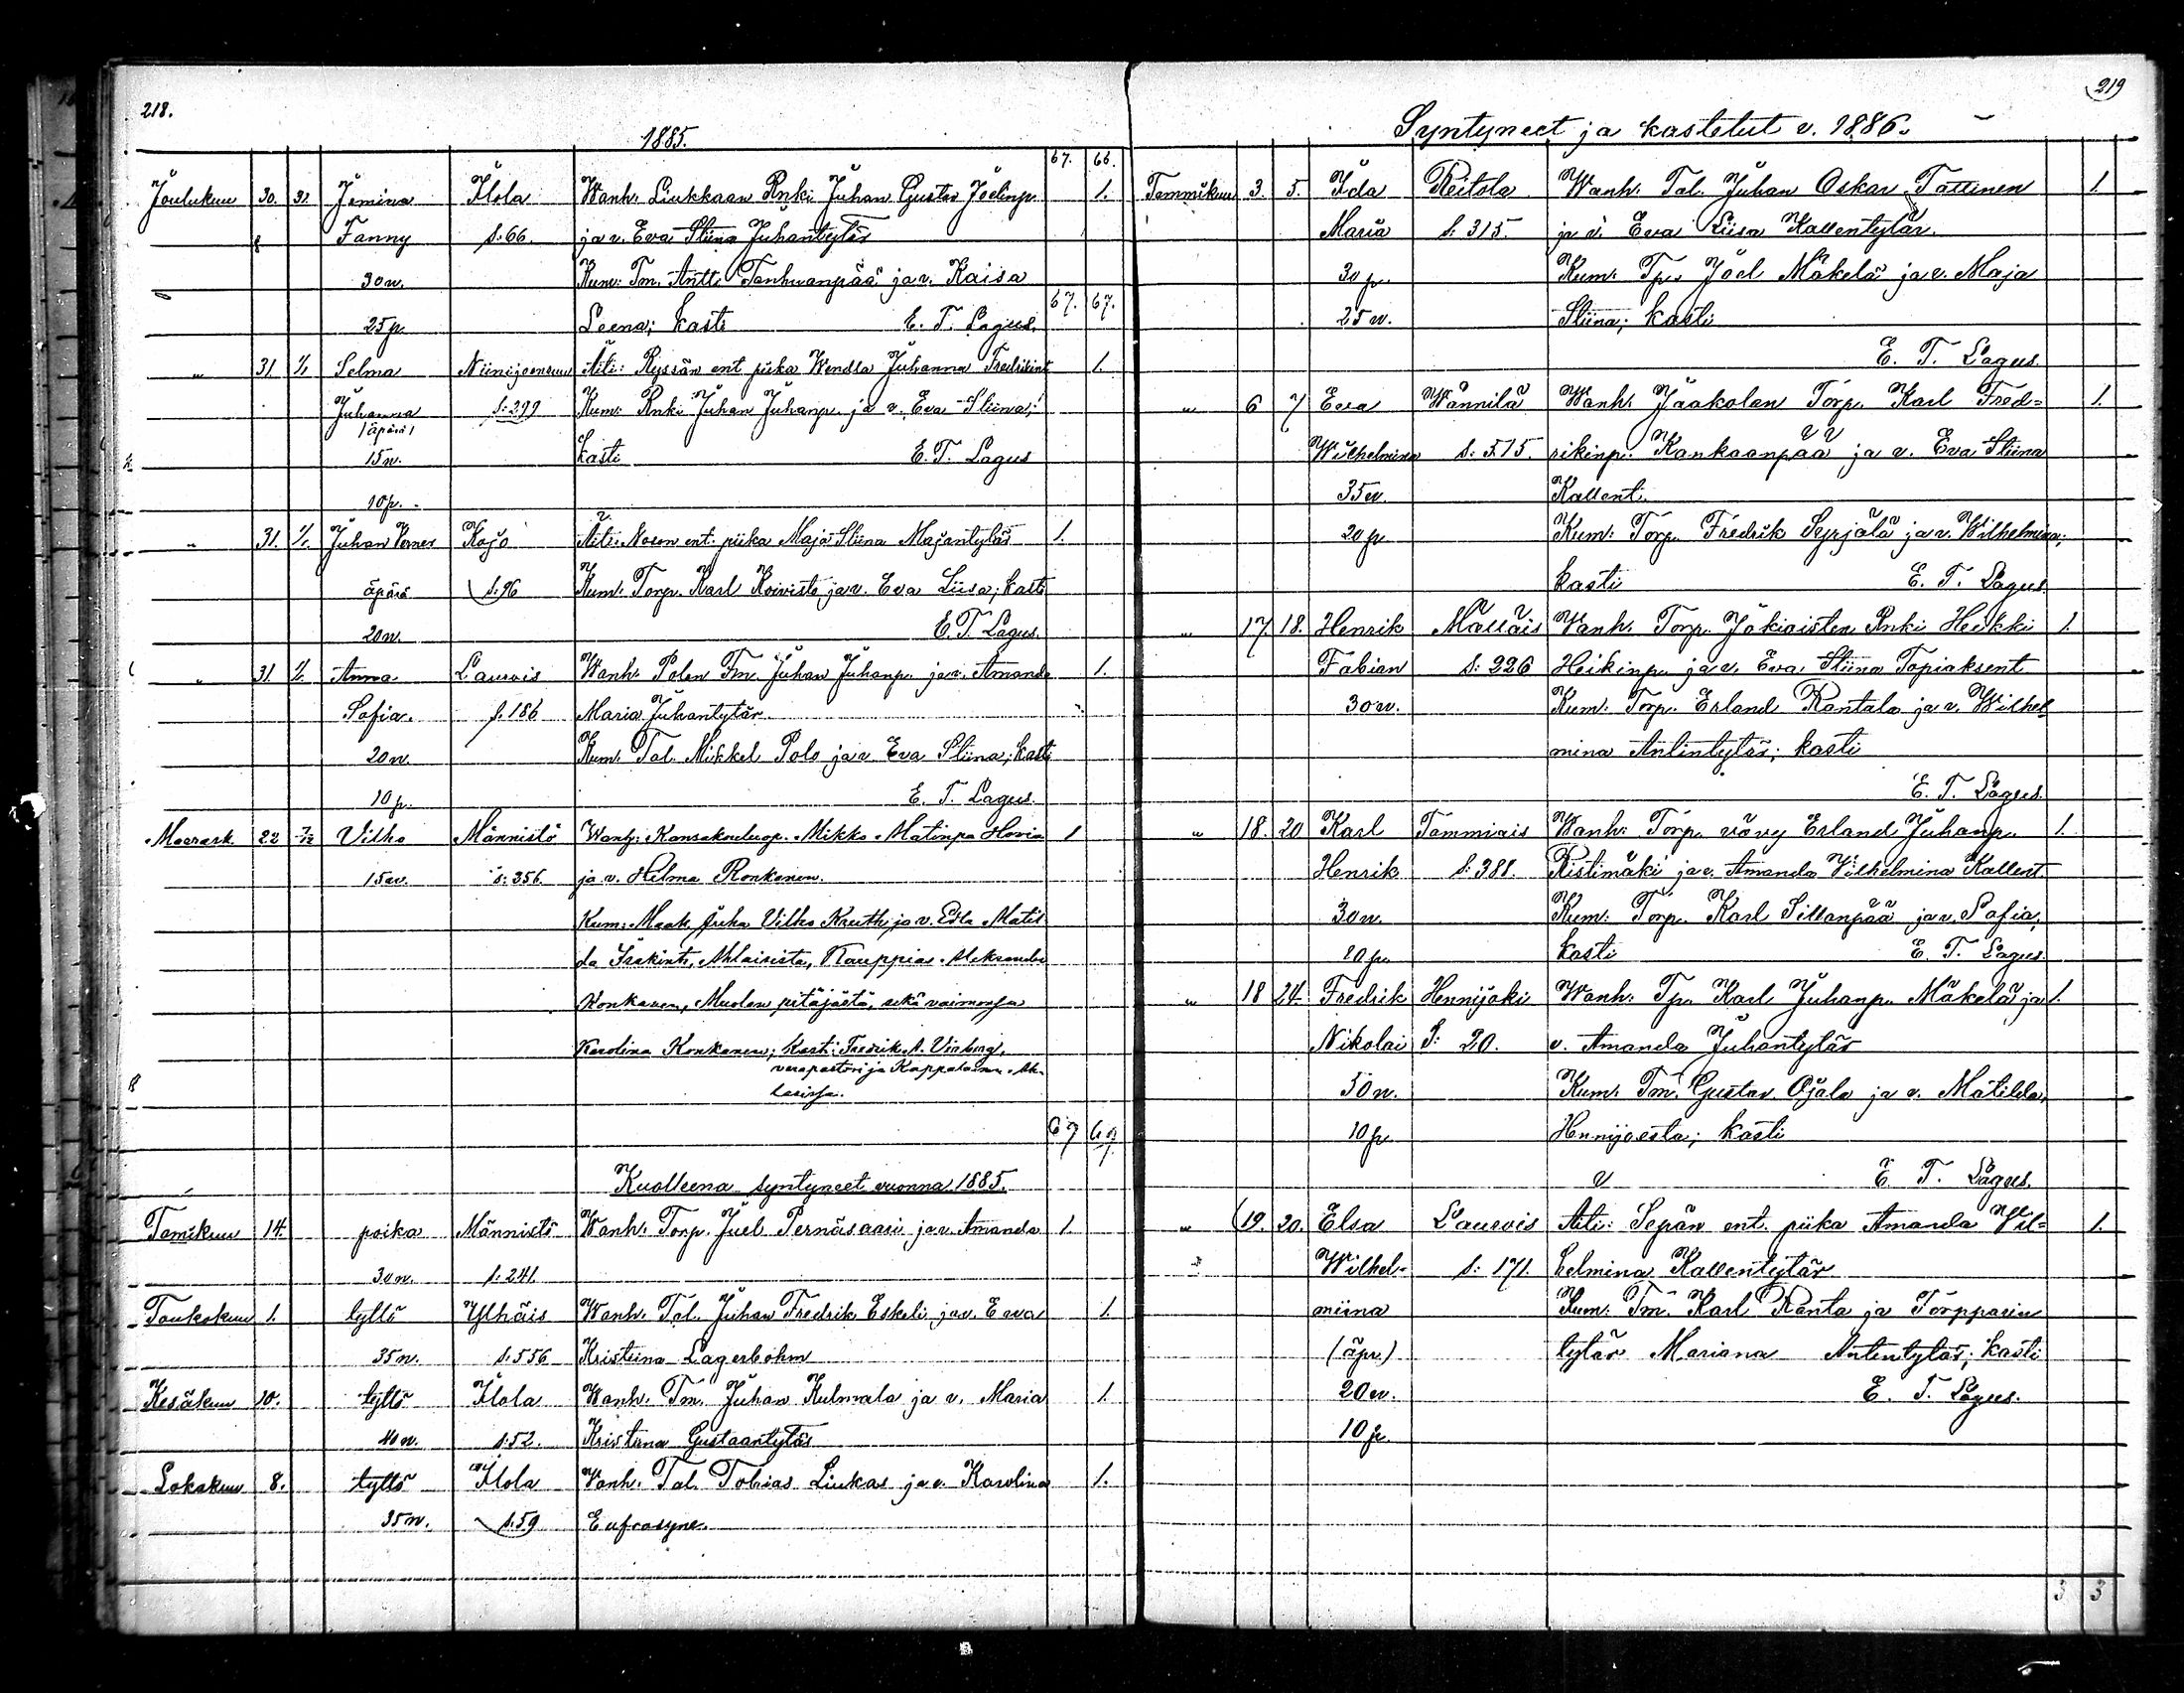 218.
1885.
67. 66.
Joulukuu 30. 31. Jemina Ilola Wanh. Liukkaan Rnki Juhan Gustav Joelinp. 1.
Fanny s: 66. ja v. Eva Stiina Juhantytär
30 v. Kum: Tm. Antti Tanhuanpää ja v. Kaisa
67. 67.
25 p. Leena; kasti E. T. Lagus.
" 31. 1/1 Selma Niinijoensuu Äiti: Ryssän ent piika Wendla Juhanna Fredrikint 1.
Juhanna s: 299 Kum: Rnki Juhan Juhanp. ja v. Eva Stiina;
/äpärä/
15 v. kasti E. T. Lagus
10 p.
" 31. 1/1. Juhan Verner Kojo Äiti: Nosen ent. piika Maja Stiina Majantytär 1.
äpärä s: 96 Kum: Torp. Karl Koivisto ja v. Eva Liisa; kasti
20 v. E. T. Lagus.
" 31. 1/1. Anna Lauvois Wanh. Polen Tm. Juhan Juhanp. ja v. Amanda 1.
Sofia. s. 186 Maria Juhantytär
20 v. Kum: Tal. Mikkel Polo ja v Eva Stiina; kasti
10 p. E. T. Lagus.
Marrask. 22 7/12 Vilho Männistö Wanh: Kansakouluop. Mikko Matinpa Hovia 1
15 v. s: 356. ja v. Helma Ronkanen.
Kum: Maat. Juha Vilho Knuth, ja v. Edla Matil
da Isakint., Ahlaisista, Kauppias Aleksander
Konkanen, Muolan pitäjästä, sekä vaimonsa
Karolina Konkanen; Kasti: Fredrik A. Virberg,
varapastori ja Kappalainen Ah-
laisissa.
67 67
Kuolleena syntyneet vuonna 1885.
Tamikuu 14. poika Männistö Wanh: Torp. Juel Pernäsaari ja v. Amanda 1.
30 v. s: 241.
Toukokuu 1. tyttö Ylhäis Wanh. Tal. Juhan Fredrik Eskeli ja v. Eva 1.
35 v. s: 556 Kristiina Lagerbohm
Kesäkuu 10. tyttö Ilola Wanh. Tm. Juhan Kulmala ja v. Maria 1.
40 v. s: 52. Kristiina Gustaantytär
Lokakuu 8. tyttö Ilola Wanh. Tal. Tobias Liukas ja v. Karolina 1.
35 v. s: 59 Eufrosyne.
219
Syntyneet ja kastetut v. 1886.
Tammikuu 3. 5. Ida Reitola Wanh. Tal. Juhan Oskar Tattinen 1.
Maria s. 315. ja v. Eva Liisa Kallentytär.
30 p. Kum: Tp. Joel Mäkelä ja v. Maja
25 v. Stiina; kasti
E. T. Lagus.
" 6 7 Eva Wännilä Wanh. Jaakolan Torp. Karl Fred= 1.
Wilhelmina s: 515. rikinp. Kankaanpää ja v. Eva Stiina
35 v. Kallent.
20 p. Kum: Torp. Fredrik Syrjälä ja v. Wilhelmina;
kasti E. T. Lagus.
" 17 18. Henrik Mallais Wanh. Torp. Jokiaisten Rnki Heikki 1.
Fabian s: 226 Heikinp. ja v. Eva Stiina Topiaksent
30 v. Kum: Torp. Erland Rantala ja v. Wilhel
mina Antintytär; kasti
E. T. Lagus.
" 18. 20 Karl Tammiais Wanh: Torp. vävy Erland Juhanp. 1.
Henrik s: 388. Ristimäki ja v. Amanda Vilhelmina Kallent
30 v. Kum: Torp. Karl Sillanpää ja v. Sofia;
10 p. kasti E. T. Lagus.
" 18 24. Fredrik Hennijoki Wanh: Tp. Karl Juhanp. Mäkelä ja 1.
Nikolai S: 20. v. Amanda Juhantytär
50 v. Kum: Tm. Gustav Ojala ja v. Matilda,
10 p. Hennijoesta; kasti
E. T. Lagus.
" 19. 20. Elsa Lauvois Äiti: Sepän ent. piika Amanda Wil= 1.
Wilhel= s: 171. helmina Kallentytär
miina Kum: Tm. Karl Ranta ja Torpparin
(äpr.) tytär Mariana Antintytär; kasti
20 v. E. T. Lagus.
10 p
3 3